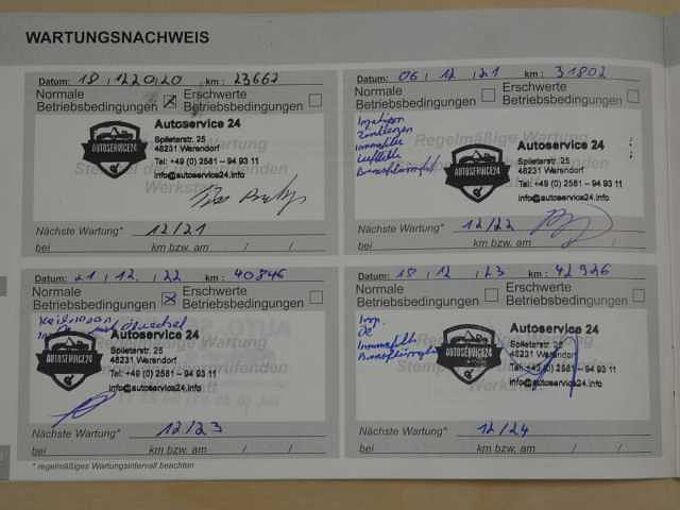 WARTUNGSNACHWEIS
Datum: 18.12.2020 km: 23662
Normale
Betriebsbedingungen
Erschwerte
Betriebsbedingungen
AUTOSERVICE24
Autoservice 24
Splieterstr. 25
48231 Warendorf
Tel: +49 (0) 2581 - 94 93 11
info@autoservice24.info
Nächste Wartung* 12/21
bei km bzw. am / /
Datum: 06.12.21 km: 31802
Normale
Betriebsbedingungen
Erschwerte
Betriebsbedingungen
Regelmäßige Wartung
AUTOSERVICE24
Autoservice 24
Splieterstr. 25
48231 Warendorf
Tel: +49 (0) 2581 - 94 93 11
info@autoservice24.info
Nächste Wartung* 12/22
bei km bzw. am / /
Datum: 21.12.22 km: 40846
Normale
Betriebsbedingungen
Erschwerte
Betriebsbedingungen
AUTOSERVICE24
Autoservice 24
Splieterstr. 25
48231 Warendorf
Tel: +49 (0) 2581 - 94 93 11
info@autoservice24.info
Nächste Wartung* 12/23
bei km bzw. am / /
* regelmäßiges Wartungsintervall beachten
Datum: 18.12.23 km: 42926
Normale
Betriebsbedingungen
Erschwerte
Betriebsbedingungen
Insp.
AUTOSERVICE24
Autoservice 24
Splieterstr. 25
48231 Warendorf
Tel: +49 (0) 2581 - 94 93 11
info@autoservice24.info
Nächste Wartung* 12/24
bei km bzw. am / /